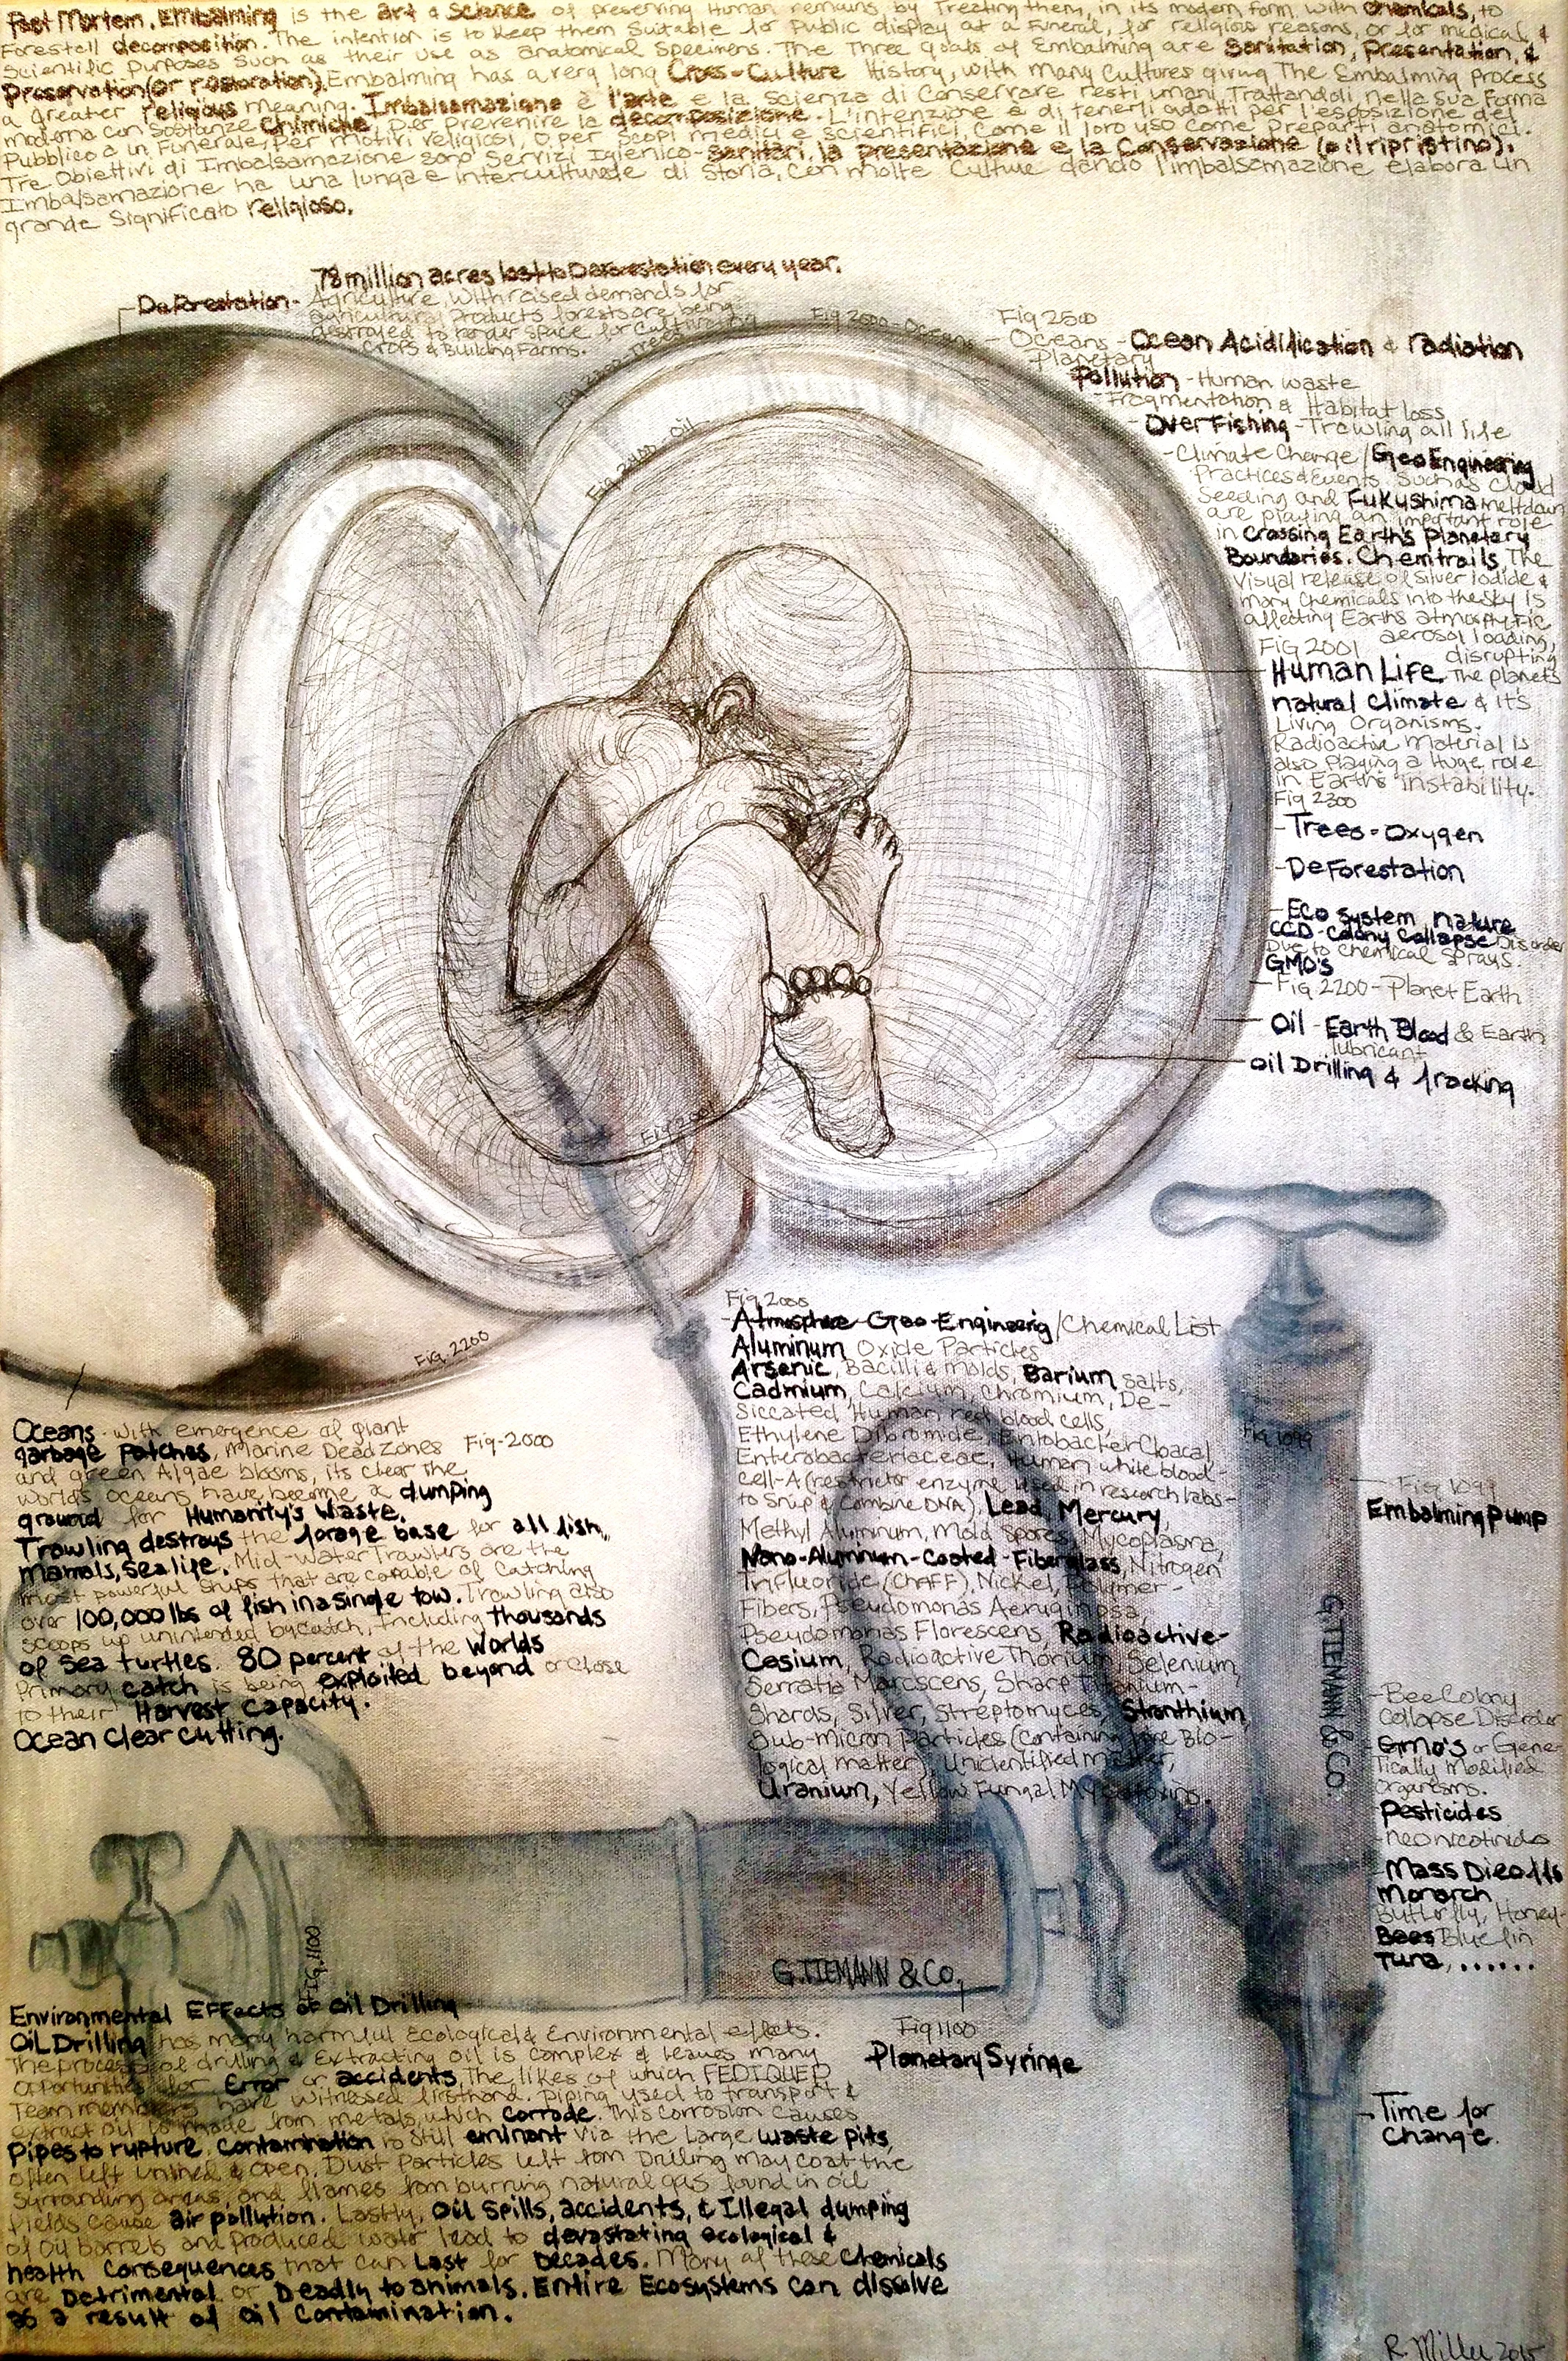 Post Mortem. Embalming is the art & science of preserving Human remains by Treating them, in its modern form with chemicals, to
Forestall decomposition. The intention is to keep them Suitable for Public display at a Funeral, for religious reasons, or for medical &
Scientific Purposes Such as their use as anatomical Specimens. The Three Goals of Embalming are Sanitation, Presentation, &
Preservation (or restoration). Embalming has a very long Cross-Culture History, with Many Cultures giving The Embalming process
a greater religious meaning. Imbalsamazione è l'arte e la scienza di Conservare resti umani Trattandoli, nella sua Forma
moderna con Sostanze Chimiche, per Prevenire la decomposizione. L'intenzione è di tenerli adatti per l'esposizione del
Pubblico a un Funerale, per motivi religiosi, o per scopi medici e scientifici, Come il loro uso come preparti anatomici.
Tre Obiettivi di Imbalsamazione sono Servizi Igienico-sanitari, la presentazione e la Conservazione (o il ripristino).
Imbalsamazione ha una lunga e interculturale di Storia, con molte Culture dando l'imbalsamazione elabora un
grande Significato religioso.
78 million acres lost to Deforestation every year.
Deforestation-
Agriculture, With raised demands for
agricultural Products forests are being
destroyed to render space for Cultivating
Crops & Building Farms.
Trees
Fig 2500-Oceans
Fig 2400-Oil
Fig 2500
Oceans - Ocean Acidification & radiation
Planetary
Pollution - Human waste
Fragmentation & Habitat loss
OverFishing - Trawling all life
-Climate Change / GeoEngineering
Practices & Events. Such as Cloud
Seeding and Fukushima meltdown
are playing an important role
in Crossing Earth's Planetary
Boundaries. Chemtrails, The
Visual release of Silver Iodide &
many Chemicals into the sky is
affecting Earths atmospheric
aerosol loading,
Fig 2001
disrupting
Human Life The planets
natural Climate & It's
Living Organisms.
Radioactive Material is
also Playing a Huge role
in Earth's instability.
Fig 2300
-Trees-Oxygen
-DeForestation
-Eco system nature
CCD-Colony Collapse Disorder
Due to Chemical Sprays.
GMO's
-Fig 2200-Planet Earth
Oil - Earth Blood & Earth
lubricant
Oil Drilling & fracking
Fig 2001
Fig. 2200
Fig 2000
Atmosphere-Geo-Engineering/Chemical List
Aluminum Oxide Particles
Arsenic, Bacilli & Molds, Barium Salts,
Cadmium, Calcium, Chromium, De-
Siccated Human red blood cells,
Ethylene Dibromide, Entobacter Cloacal,
Enterobacteriaceae, Human white blood-
Cell-A (restrictor enzyme used in research labs-
to Snip & Combine DNA), Lead, Mercury,
Methyl Aluminum, Mold Spores, Mycoplasma,
Nano-Aluminum-Coated-Fiberglass, Nitrogen
Trifluoride (CHAFF), Nickel, Polymer-
Fibers, Pseudomonas Aeruginosa,
Pseudomonas Florescens, Radioactive-
Cesium, Radioactive Thorium, Selenium,
Serratia Marcscens, Sharp Titanium-
Shards, Silver, Streptomyces, Stronthium,
Sub-micron Particles (Containing live Bio-
logical matter), Unidentified matter,
Uranium, Yellow Fungal Mycotoxins.
Oceans-with emergence of giant
garbage patches, Marine Dead Zones
Fig-2000
and green Algae blooms, its clear the
worlds oceans have become a dumping
ground for Humanity's Waste.
Trawling destroys the forage base for all fish,
mamals, sea life. Mid-Water Trawlers are the
most powerful Ships that are capable of Catching
over 100,000 lbs of fish in a single tow. Trawling also
scoops up unintended bycatch, Including thousands
of Sea turtles. 80 percent of the Worlds
Primary catch is being exploited beyond or close
to their Harvest Capacity.
Ocean Clear Cutting.
Fig 1099
Fig 1099
Embalming Pump
G.TIEMANN & CO.
-Bee Colony
Collapse Disorder
-GMO's or Gene-
tically Modified
Organisms.
Pesticides
-neonicotinoids
-Mass Die offs
Monarch
Butterfly, Honey-
Bees Blue fin
Tuna, ......
Fig. 1100
G.TIEMANN & CO.
Fig 1100
Planetary Syringe
Environmental Effects of Oil Drilling
Oil Drilling has many harmful Ecological & Environmental effects.
The process of drilling & Extracting oil is complex & leaves many
opportunities for Error or accidents, The likes of which FEDIQUEP
Team members have witnessed firsthand. piping used to transport &
extract oil is made from metals, which corrode. This Corrosion causes
Pipes to rupture. Contamination is still eminant via the large waste pits,
often left Unlined & open. Dust Particles left from Drilling may coat the
Surrounding areas, and flames from burning natural gas found in oil
fields cause air pollution. Lastly, Oil Spills, accidents, & Illegal dumping
of oil barrels and produced water lead to devastating ecological &
health Consequences that can Last for Decades. Many of these Chemicals
are Detrimental or Deadly to animals. Entire Ecosystems can dissolve
as a result of Oil Contamination.
-Time for
Change.
R. Miller 2015